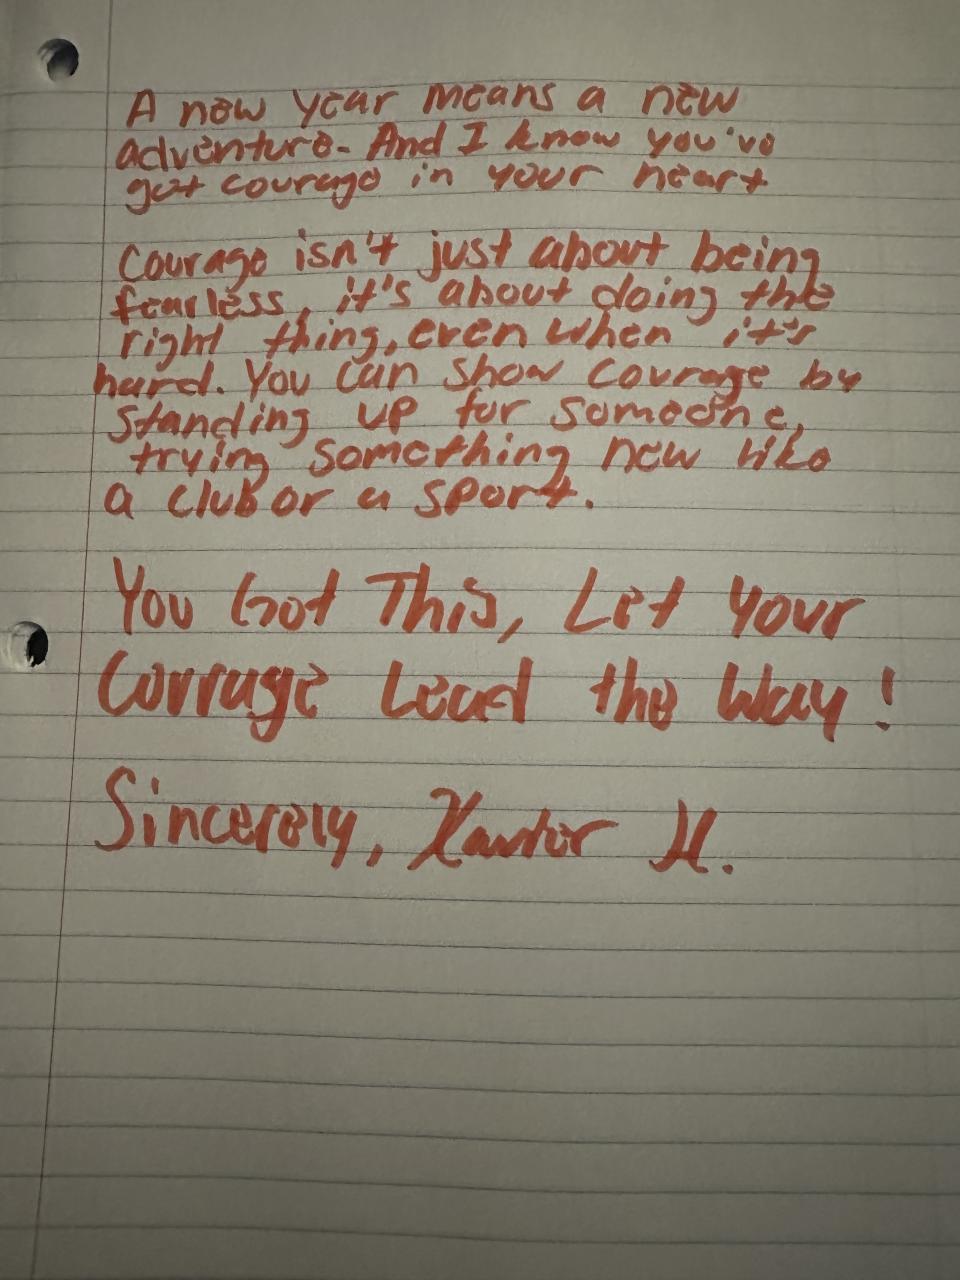 A new year means a new
adventure. And I know you've
got courage in your heart
Courage isn't just about being
fearless, it's about doing the
right thing, even when it's
hard. You can show courage by
standing up for someone,
trying something new like
a club or a sport.
You Got This, Let Your
Courage Lead the Way!
Sincerely, H.